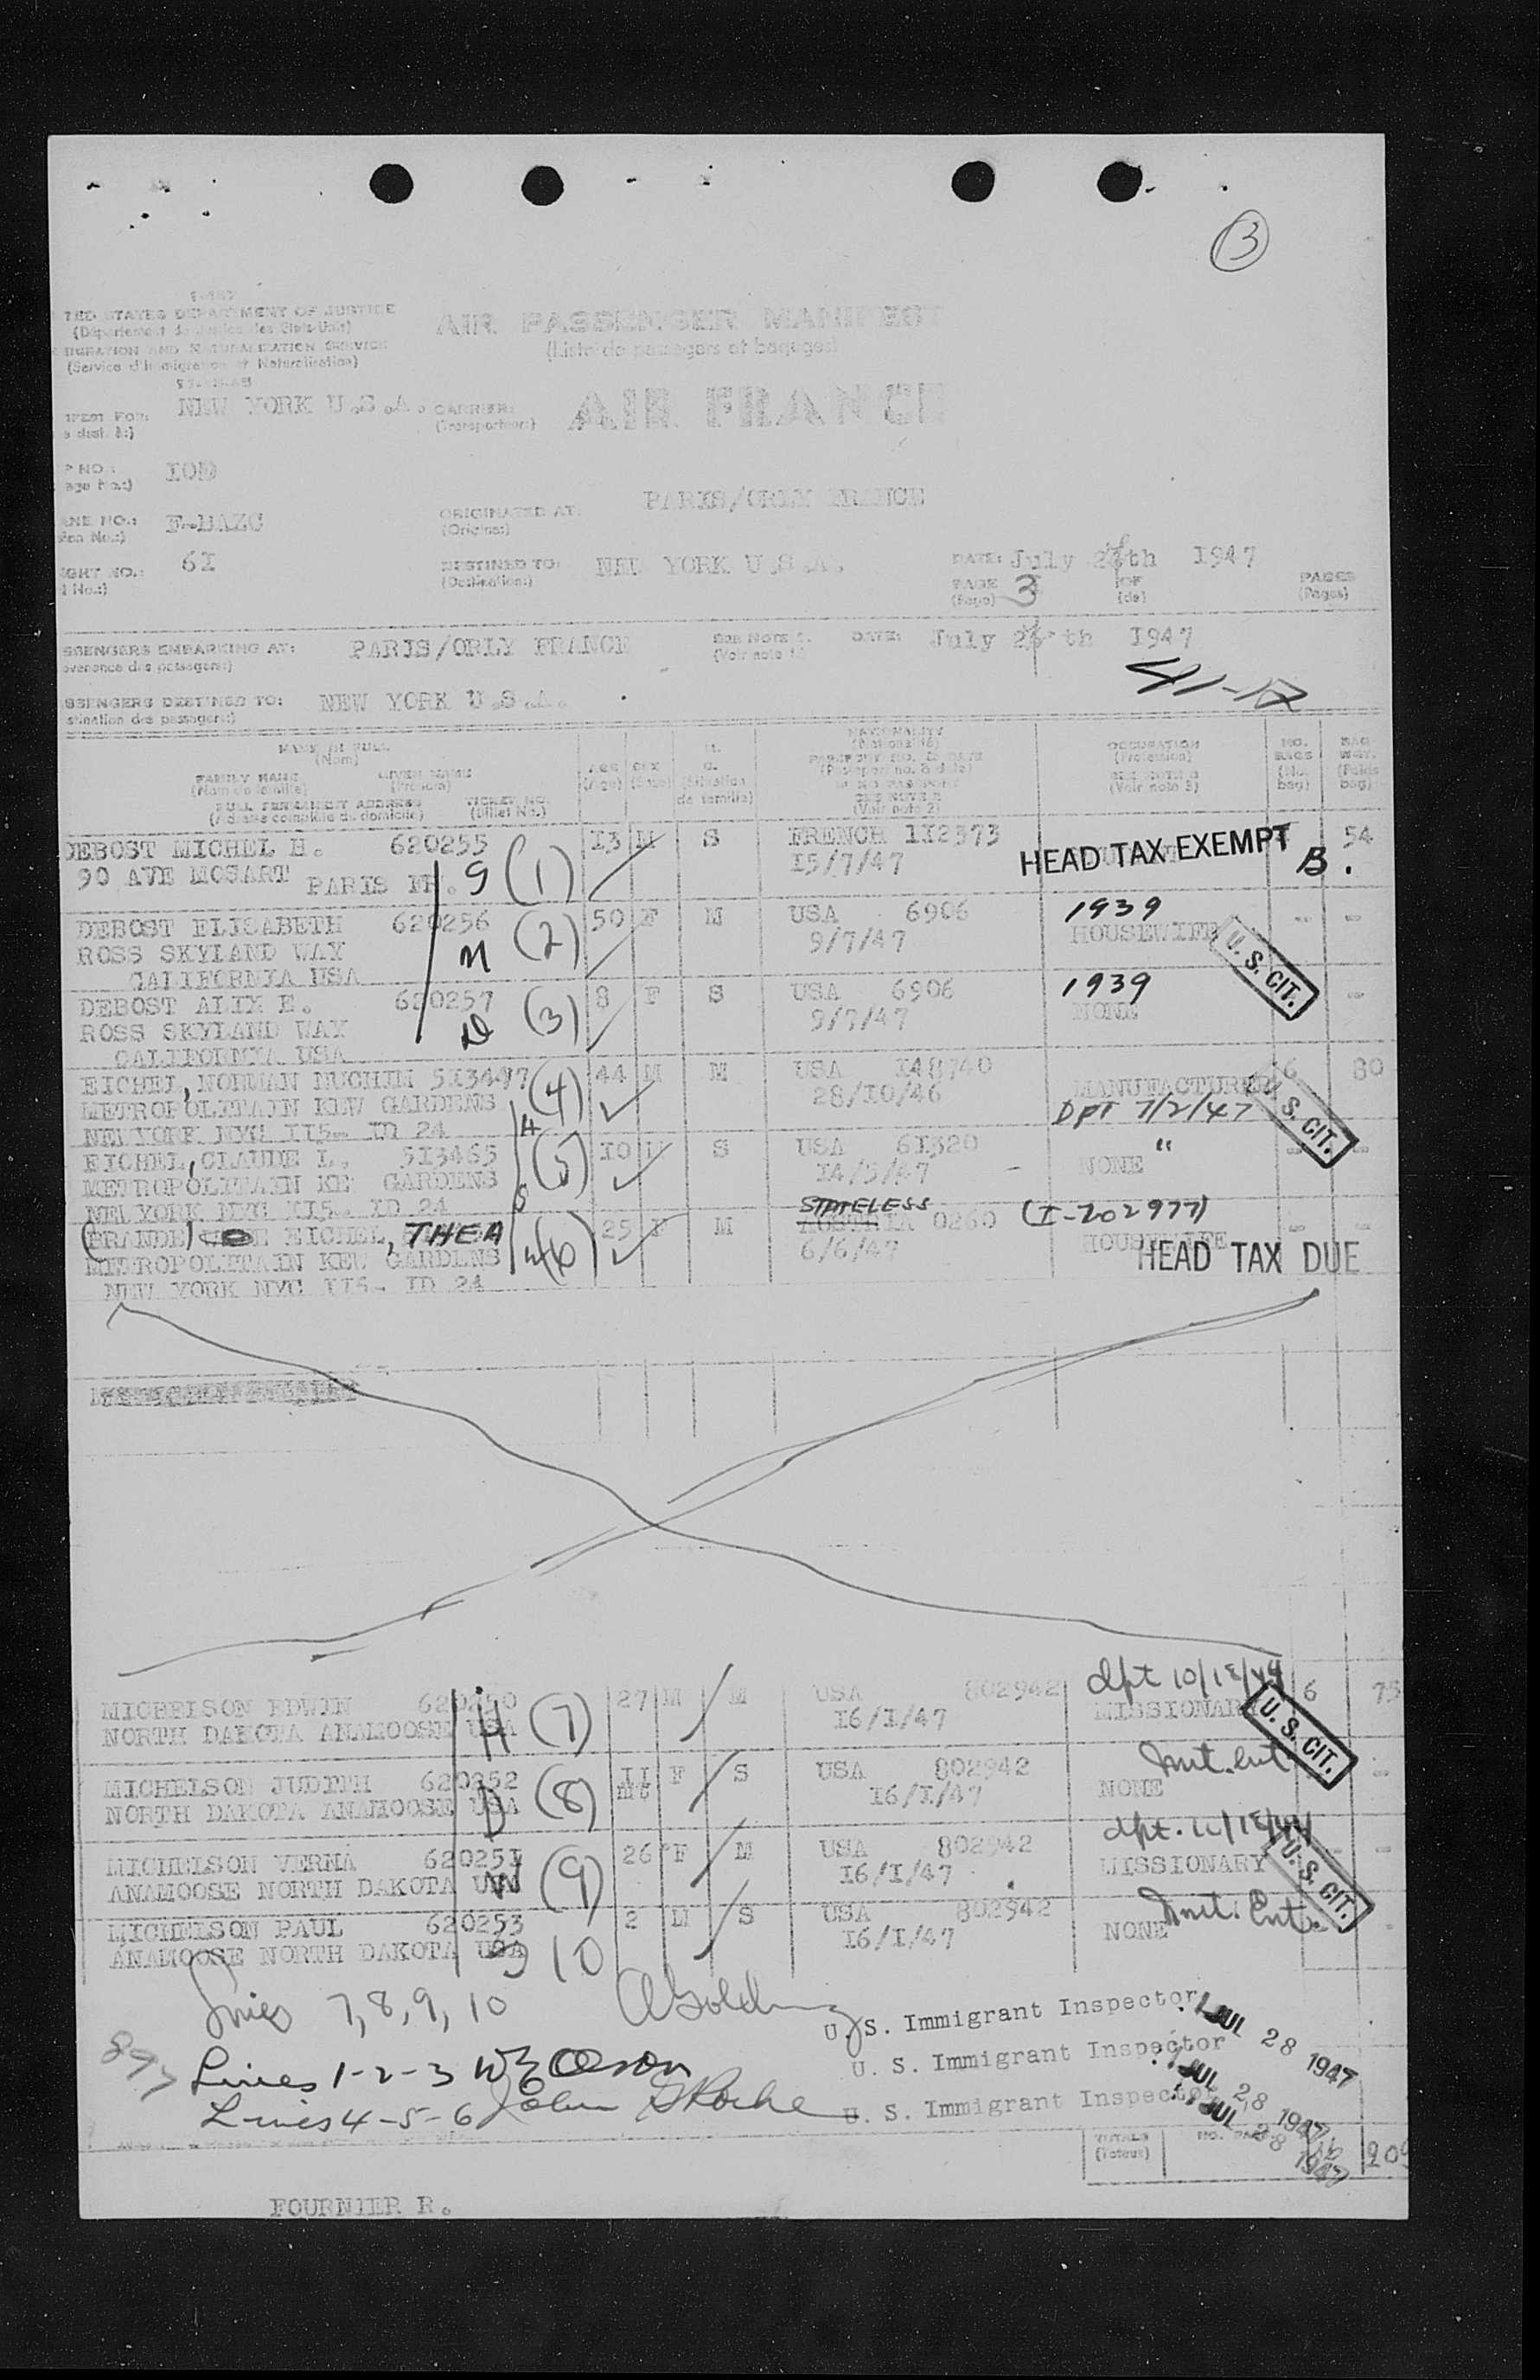 3
TED STATES DEPARTMENT OF JUSTICE
AIR PASSENGER MANIFEST
(Département de Justice des Etats-Unis)
(Liste de passagers et bagages)
IGRATION AND NATURALIZATION SERVICE
(Service d'Immigration et Naturalisation)
NEW YORK U.S.A.
CARRIER:
(Transporteur:)
AIR FRANCE
IOD
PARIS/ORLY FRANCE
ORIGINATED AT:
(Origine:)
F-BAZC
6I
DESTINED TO:
(Destination:)
NEW YORK U.S.A.
DATE: July 2 th 1947
PAGE 3 OF PAGES
(Page) (de) (Pages)
SSENGERS EMBARKING AT: PARIS/ORLY FRANCE See Note 1. DATE: July 2 th 1947
ovenance des passagers:) (Voir note 1.)
41-17
SSENGERS DESTINED TO: NEW YORK U.S.A.
stination des passagers:)
NAME IN FULL
(Nom)
FAMILY NAME GIVEN NAME
(Nom de famille) (Prénom)
FULL PERMANENT ADDRESS TICKET NO.
(Adresse complète du domicile) (Billet No.)
AGE SEX
(Age) (Sexe) (Situation de famille)
NATIONALITY
(Nationalité)
PASSPORT NO. & DATE
(Passeport no. & date)
IF NO PASSPORT
SEE NOTE 2
(Voir note 2)
OCCUPATION
(Profession)
SEE NOTE 3
(Voir note 3)
NO. BAGS
(No. bag)
BAG. WGT.
(Poids bag)
DEBOST MICHEL H. 620255 I3 M S FRENCH 1I2373 HEAD TAX EXEMPT 54
90 AVE MOSART PARIS FR. S (1) I5/7/47 B.
DEBOST ELISABETH 620256 50 F M USA 6906 1939
ROSS SKYLAND WAY M (2) 9/7/47 HOUSEWIFE U.S. CIT.
CALIFORNIA USA
DEBOST ALIX E. 620257 8 F S USA 6906 1939
ROSS SKYLAND WAY D (3) 9/7/47 NONE
CALIFORNIA USA
EICHEL, NORMAN NUCHIM 5I3497 (4) 44 M M USA I48740 MANUFACTURER 6 80
METROPOLITAIN KEW GARDENS 28/I0/46 Dpt 7/2/47 S. CIT.
NEW YORK NYC II5- ID 24 H
EICHEL, CLAUDE L. 5I3465 (5) I0 M S USA 6I320 "
METROPOLITAIN KE GARDENS I4/5/47 NONE
NEW YORK NYC II5- ID 24 S
STATELESS
(BRANDE) EICHEL, THEA (6) 25 F M 0260 (I-202977)
METROPOLITAIN KEW GARDENS W 6/6/47 HOUSEWIFE
HEAD TAX DUE
NEW YORK NYC II5- ID 24
dpt 10/18/44
MICHELSON EDWIN 620250 27 M M USA 802942 MISSIONARY 6 75
NORTH DAKOTA ANAMOOSE USA H (7) I6/I/47 U.S. CIT.
Init. Ent.
MICHELSON JUDITH 620252 II F S USA 802942 NONE
NORTH DAKOTA ANAMOOSE USA D (8) I6/I/47
MICHELSON VERNA 62025I 26 F M USA 802942 MISSIONARY
ANAMOOSE NORTH DAKOTA USA W (9) I6/I/47 U.S. CIT.
Init. Ent.
MICHELSON PAUL 620253 2 M S USA 802942 NONE
ANAMOOSE NORTH DAKOTA USA S 10 I6/I/47
Lines 7, 8, 9, 10 U. S. Immigrant Inspector JUL 28 1947
Lines 1-2-3 U. S. Immigrant Inspector JUL 28 1947
Lines 4-5-6 U. S. Immigrant Inspector JUL 28 1947
TOTALS
(Totaux)
FOURNIER R.